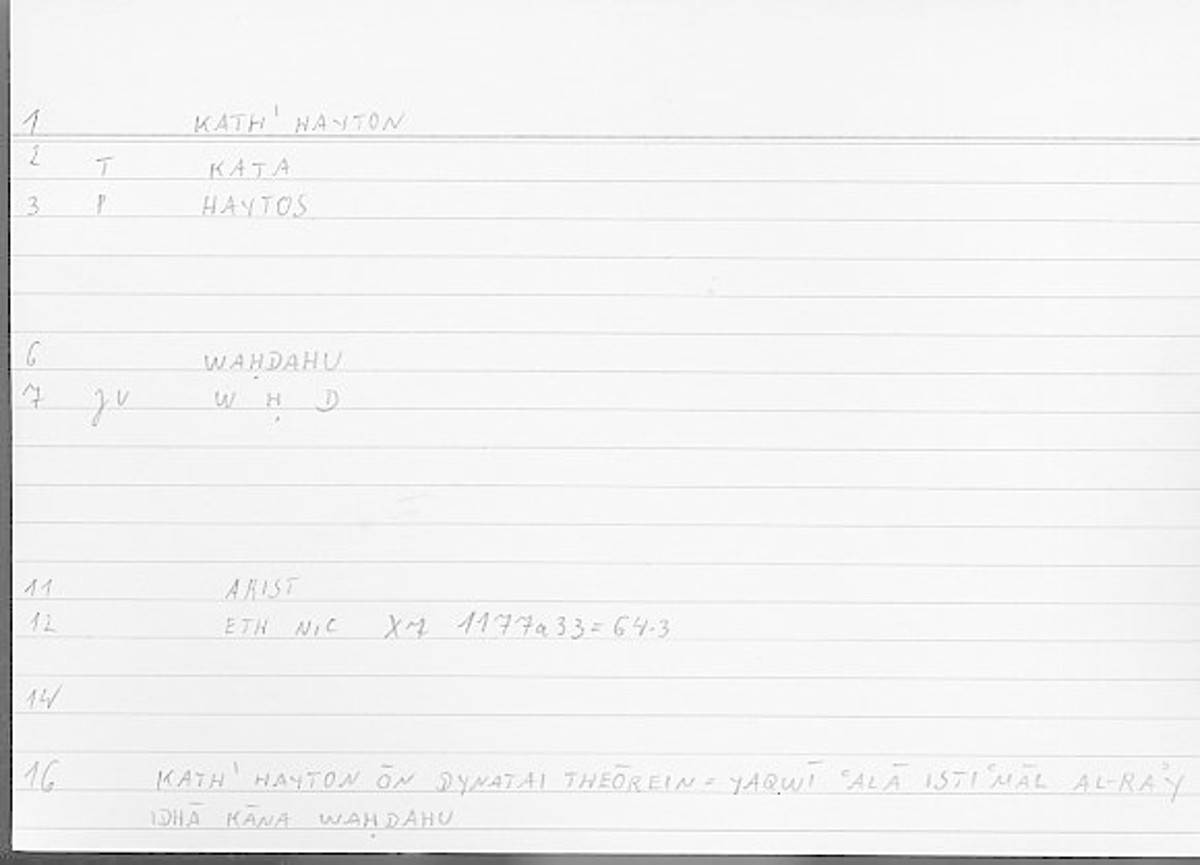 1 KATH' HAYTON
2 T KATA
3 P HAYTOS
6 WAḤDAHU
7 JV W Ḥ D
11 ARIST
12 ETH NIC X7 1177a33=64.3
14
16 KATH' HAYTON ŌN DYNATAI THEŌREIN = YAQWĪ ʿALĀ ISTIʿMĀL AL-RAʾY
IDHĀ KĀNA WAḤDAHU